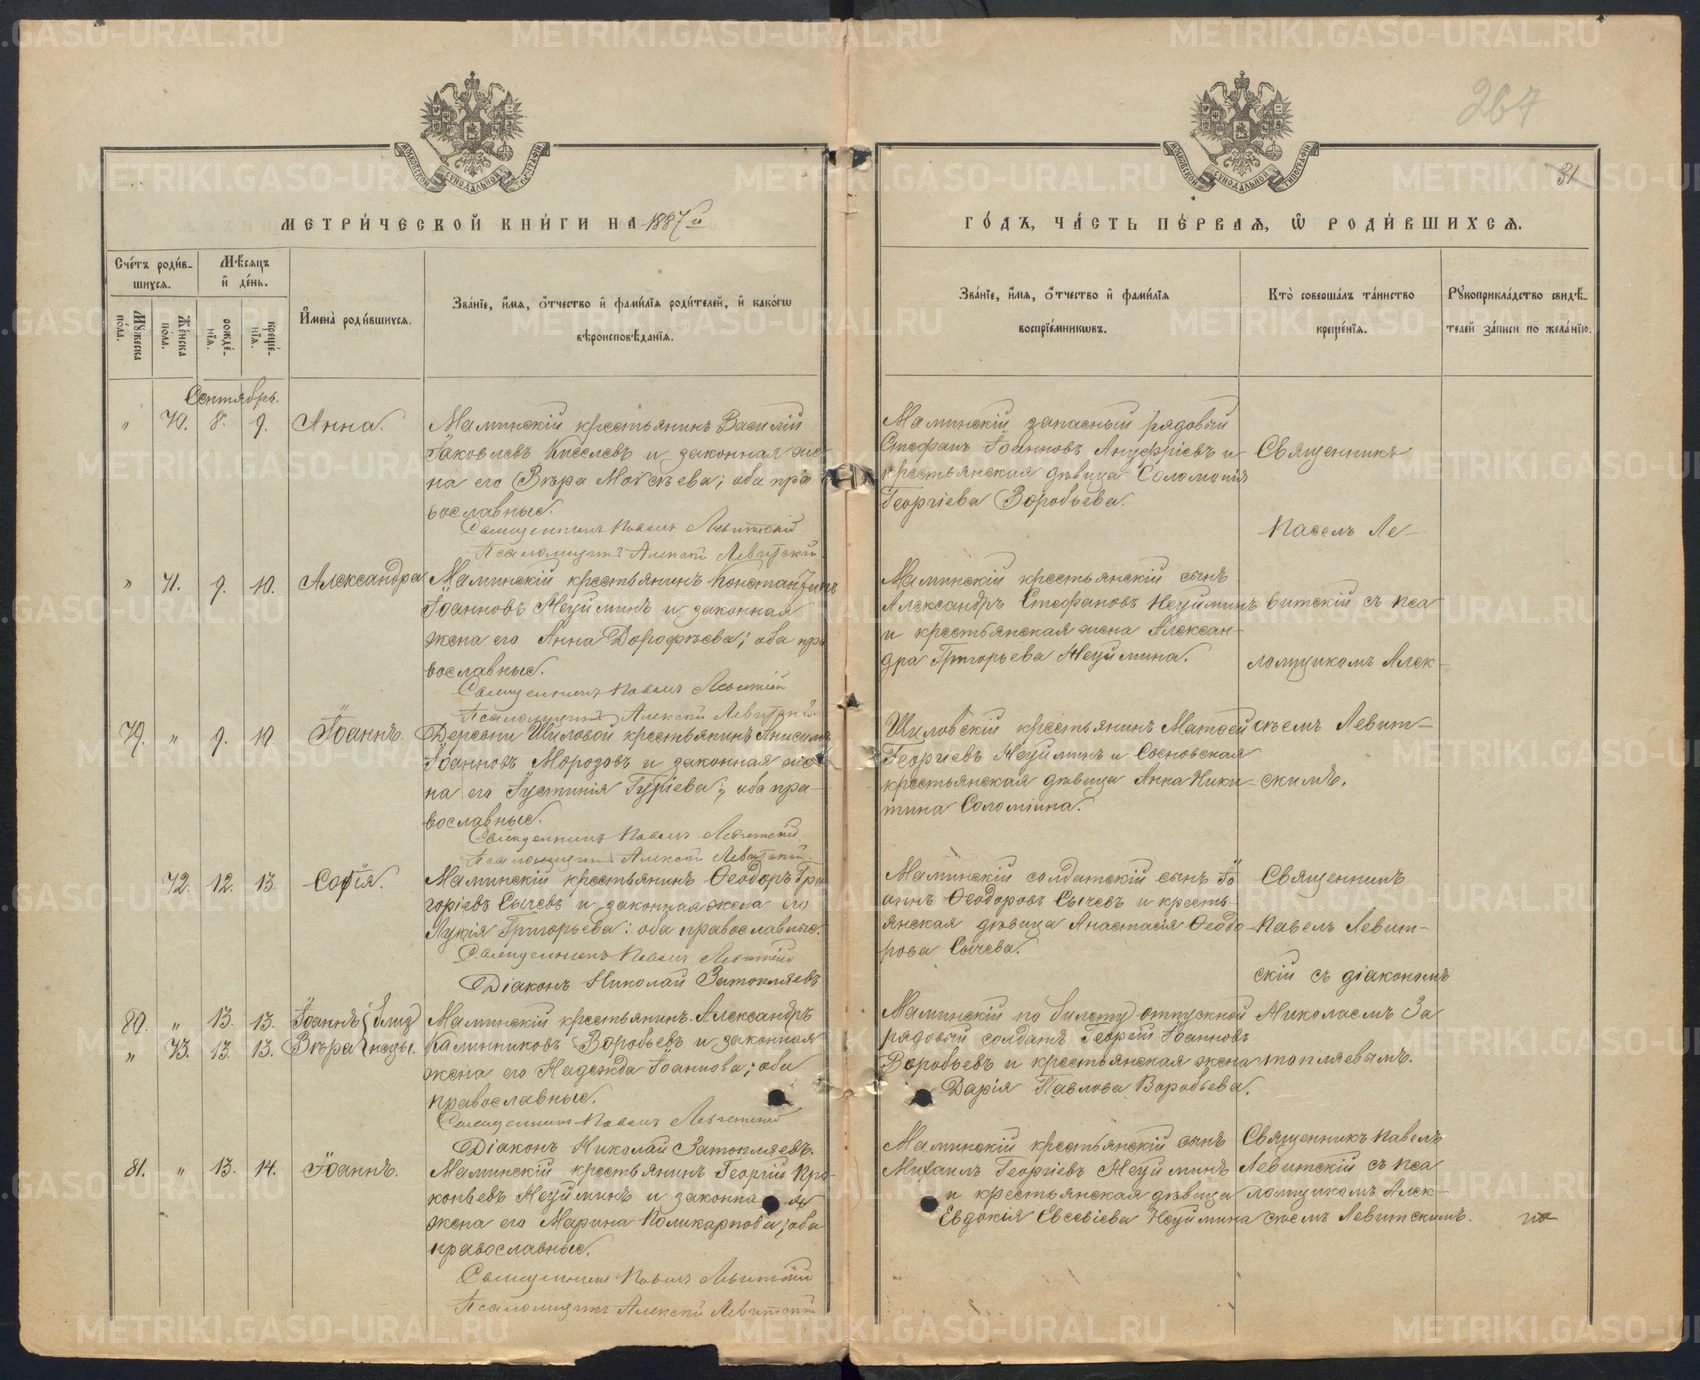 267
31
МЕТРИ́ЧЕСКОЙ КНИ́ГИ НА 1887й
ГО́ДЪ, ЧА́СТЬ ПЕ́РВАѦ, Ѡ РОДИ́ВШИХСѦ.
Сче́тъ роди́в-
шихся.
Мѣ́сяцъ
и де́нь.
Му́жеска
по́ла.
Же́нска
пола.
рожде́-
нїя.
креще́-
нїя.
Имена̀ роди́вшихся.
Зва́нїе, и́мя, о́тчество и фами́лїя роди́телей, и како́гѡ
вѣроисповѣ́данїя.
Зва́нїе, и́мя, о́тчество и фами́лїя
воспрїе́мникѡвъ.
Кто̀ соверша́лъ та́инство
креще́нїя.
Рꙋкоприкла́дство свидѣ́-
телей за́писи по жела́нїю.
Сентябрь.
" 70. 8. 9. Анна.
Маминскій крестьянинъ Василій
Іаковлевъ Киселевъ и законная же-
на его Вѣра Моѵсеева; оба пра
вославные.
Священникъ Павелъ Левитскій
Псаломщикъ Алексѣй Левитскій.
Маминскій запасный рядовый
Стефанъ Іоанновъ Ануфріевъ и
крестьянская дѣвица Соломонія
Георгіева Воробьева.
Священникъ
Павелъ Ле-
" 71. 9. 10. Александра
Маминскій крестьянинъ Константинъ
Іоанновъ Неуйминъ и законная
жена его Анна Дорофѣева; оба пра
вославные.
Священникъ Павелъ Левитскій
Псаломщикъ Алексѣй Левитскій.
Маминскій крестьянскій сынъ
Александръ Стефановъ Неуйминъ
и крестьянская жена Алексан-
дра Григорьева Неуймина.
витскій съ пса
ломщикомъ Алек-
79. " 9. 10. Іоаннъ.
Деревни Шиловой крестьянинъ Анисимъ
Іоанновъ Морозовъ и законная же-
на его Іустинія Гуріева; оба пра-
вославные.
Священникъ Павелъ Левитскій
Псаломщикъ Алексѣй Левитскій.
Шиловскій крестьянинъ Матѳей
Георгіевъ Неуйминъ и Сосновская
крестьянская дѣвица Анна Ники-
тина Соломіина.
сѣемъ Левит-
скимъ.
72. 12. 13. Софія.
Маминскій крестьянинъ Ѳеодоръ Гри
горіевъ Сычевъ и законная жена его
Лукія Григорьева; оба православные.
Священникъ Павелъ Левитскій
Діаконъ Николай Затопляевъ
Маминскій солдатскій сынъ Іо
аннъ Ѳеодоровъ Сычевъ и кресть-
янская дѣвица Анастасія Ѳеодо-
рова Сычева.
Священникъ
Павелъ Левит-
скій съ діакономъ
80. " 13. 13. Іоаннъ близ
" 73. 13. 13. Вѣра нецы.
Маминскій крестьянинъ Александръ
Калинниковъ Воробьевъ и законная
жена его Надежда Іоаннова; оба
православные.
Священникъ Павелъ Левитскій
Діаконъ Николай Затопляевъ.
Маминскій по билету отпускной
рядовый солдатъ Георгій Іоанновъ
Воробьевъ и крестьянская жена
Дарія Павлова Воробьева.
Николаемъ За
топляевымъ.
81. " 13. 14. Іоаннъ.
Маминскій крестьянинъ Георгій Про-
копьевъ Неуйминъ и законная
жена его Марина Поликарпова; оба
православные.
Священникъ Павелъ Левитскій
Псаломщикъ Алексѣй Левитскій
Маминскій крестьянскій сынъ
Михаилъ Георгіевъ Неуйминъ
и крестьянская дѣвица
Евдокія Евсевіева Неуймина
Священникъ Павелъ
Левитскій съ пса
ломщикомъ Алек-
сѣемъ Левитскимъ.
METRIKI.GASO-URAL.RU